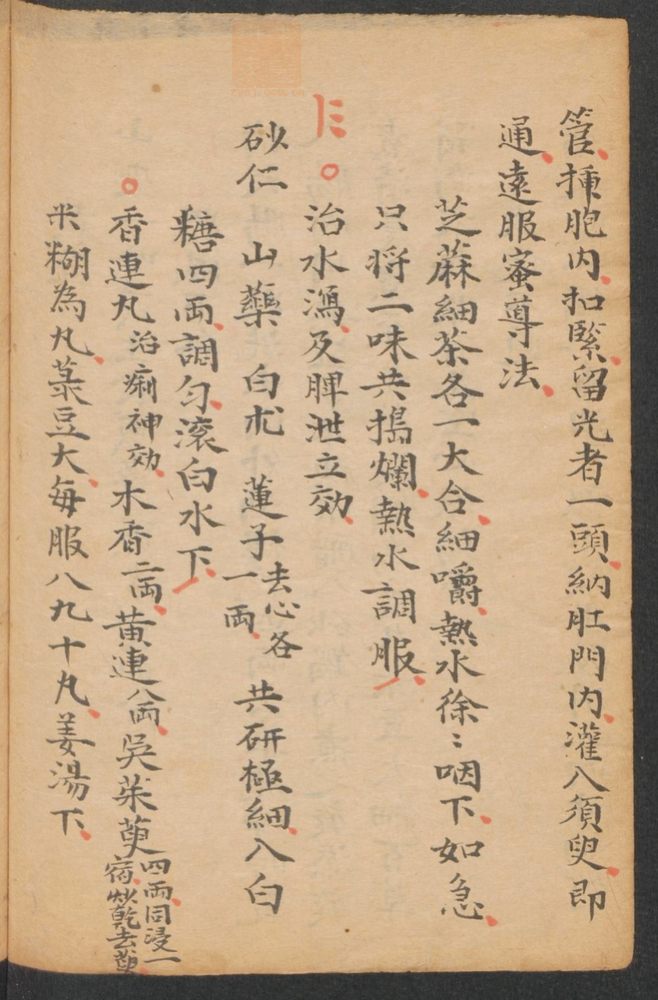 管揷胞内扣緊留光者一頭納肛門内灌入須臾即
通遠服蜜導法
芝蔴細茶各一大合細嚼熱水徐〻咽下如急
只將二味共搗爛熱水調服
治水瀉及脾泄立効
砂仁 山藥 白朮 蓮子去心各一両 共研極細入白
糖四両調匀滚白水下
香連丸治痢神効木香二両黄連八両吳茱萸四両同浸一宿炒乾去萸
米糊為丸菉豆大每服八九十丸姜湯下